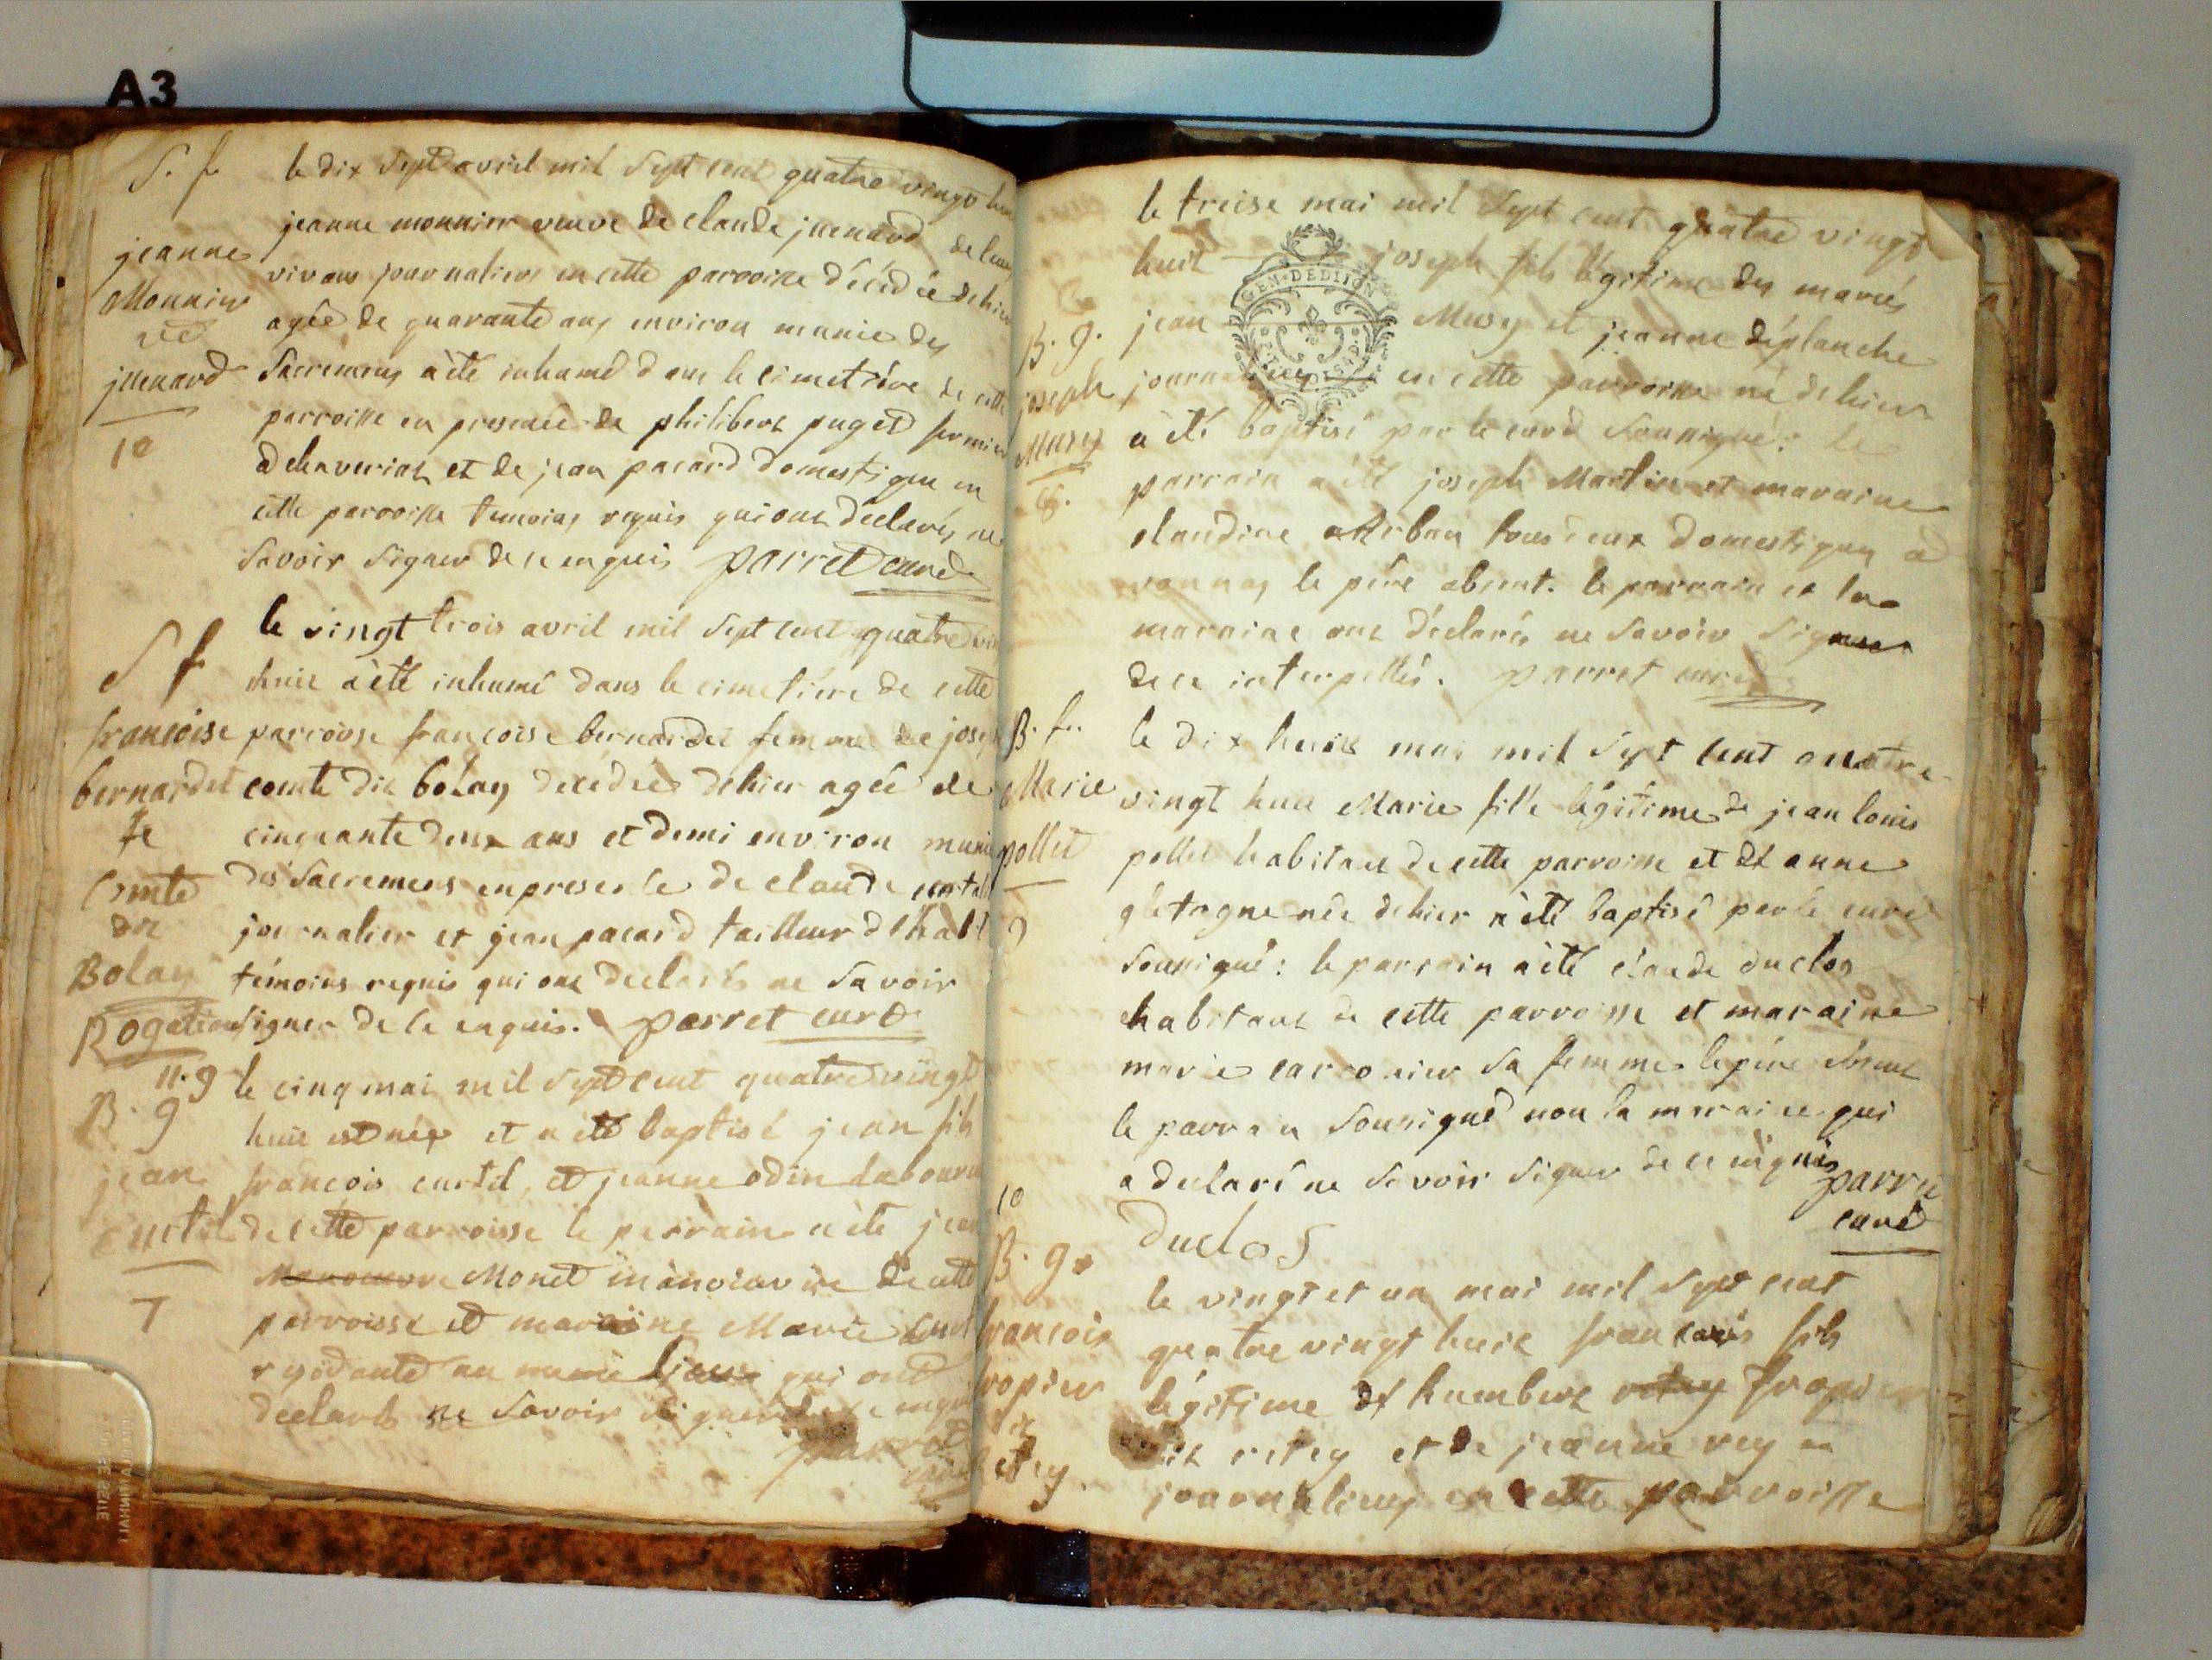 A3
S. f.
jeanne
Monnier
vve
juenard
10
le dix Sept avril mil Sept cent quatre vingt
jeanne monnier veuve de claude juenard de leur
vivans journaliers en cette parroisse décédée dehier
agée de quarante ans environ munie des
Sacremens a été inhumé dans le cimetière de cette
parroisse en presence de philibert puget fermier
a chaveriat et de jean pacard domestique en
cette parroisse temoins requis qui ont déclarés ne
Savoir Signer de ce enquis parret curé
S f
francoise
bernardet
fe
Comte
dit
Bolay
Rogation
le vingt trois avril mil Sept cent quatre
huit a été inhumé dans le cimetière de cette
parroisse francoise bernardet femme de joseph
comte dit bolay decedée dehier agée de
cinquante deux ans et demi environ munie
des Sacremens en presence de claude
journalier et jean pacard tailleur d'habit
témoins requis qui ont declarés ne Savoir
signer de ce enquis. parret curé
11. g
B. g
jean
curtil
7
le cinq mai mil Sept cent quatre vingt
huit est né et a été baptisé jean fils
francois curtil et jeanne odin laboureur
de cette parroisse le parrain a été jean
Monet manoeuvre de cette
parroisse et maraine Marie
residante au meme lieux qui ont
declarés ne Savoir signer de ce enquis
parret
curé
B. g.
joseph
Musy
8.
le treise mai mil Sept cent quatre vingt
huit joseph fils légitime des mariés
jean Musy et jeanne déplanche
journaliers en cette parroisse né dehier
a été baptisé par le curé Sousigné: le
parrain a été joseph Martin et maraine
claudine tous deux domestiques a
vonnas le père absent. le parrain et la
maraine ont déclarés ne Savoir Signer
de ce interpellés. parret curé
GEN. DE DIJON
B. f.
Marie
pollet
9
le dix huit mai mil Sept cent quatre
vingt huit Marie fille légitime de jean louis
pollet habitant de cette parroisse et d'anne
née dehier a été baptisé par le curé
Sousigné: le parrain a été claude duclos
habitant de cette parroisse et maraine
marie carronier Sa femme le père absent
le parrain Sousigné non la maraine qui
a declaré ne Savoir Signer de ce enquis
parret
curé
duclos
10
B. g.
francois
tropier
dit
retey
le vingt et un mai mil Sept cent
quatre vingt huit francois fils
légitime d'humbert retey tropier
dit retey et de jeanne rey
journaliers en cette parroisse